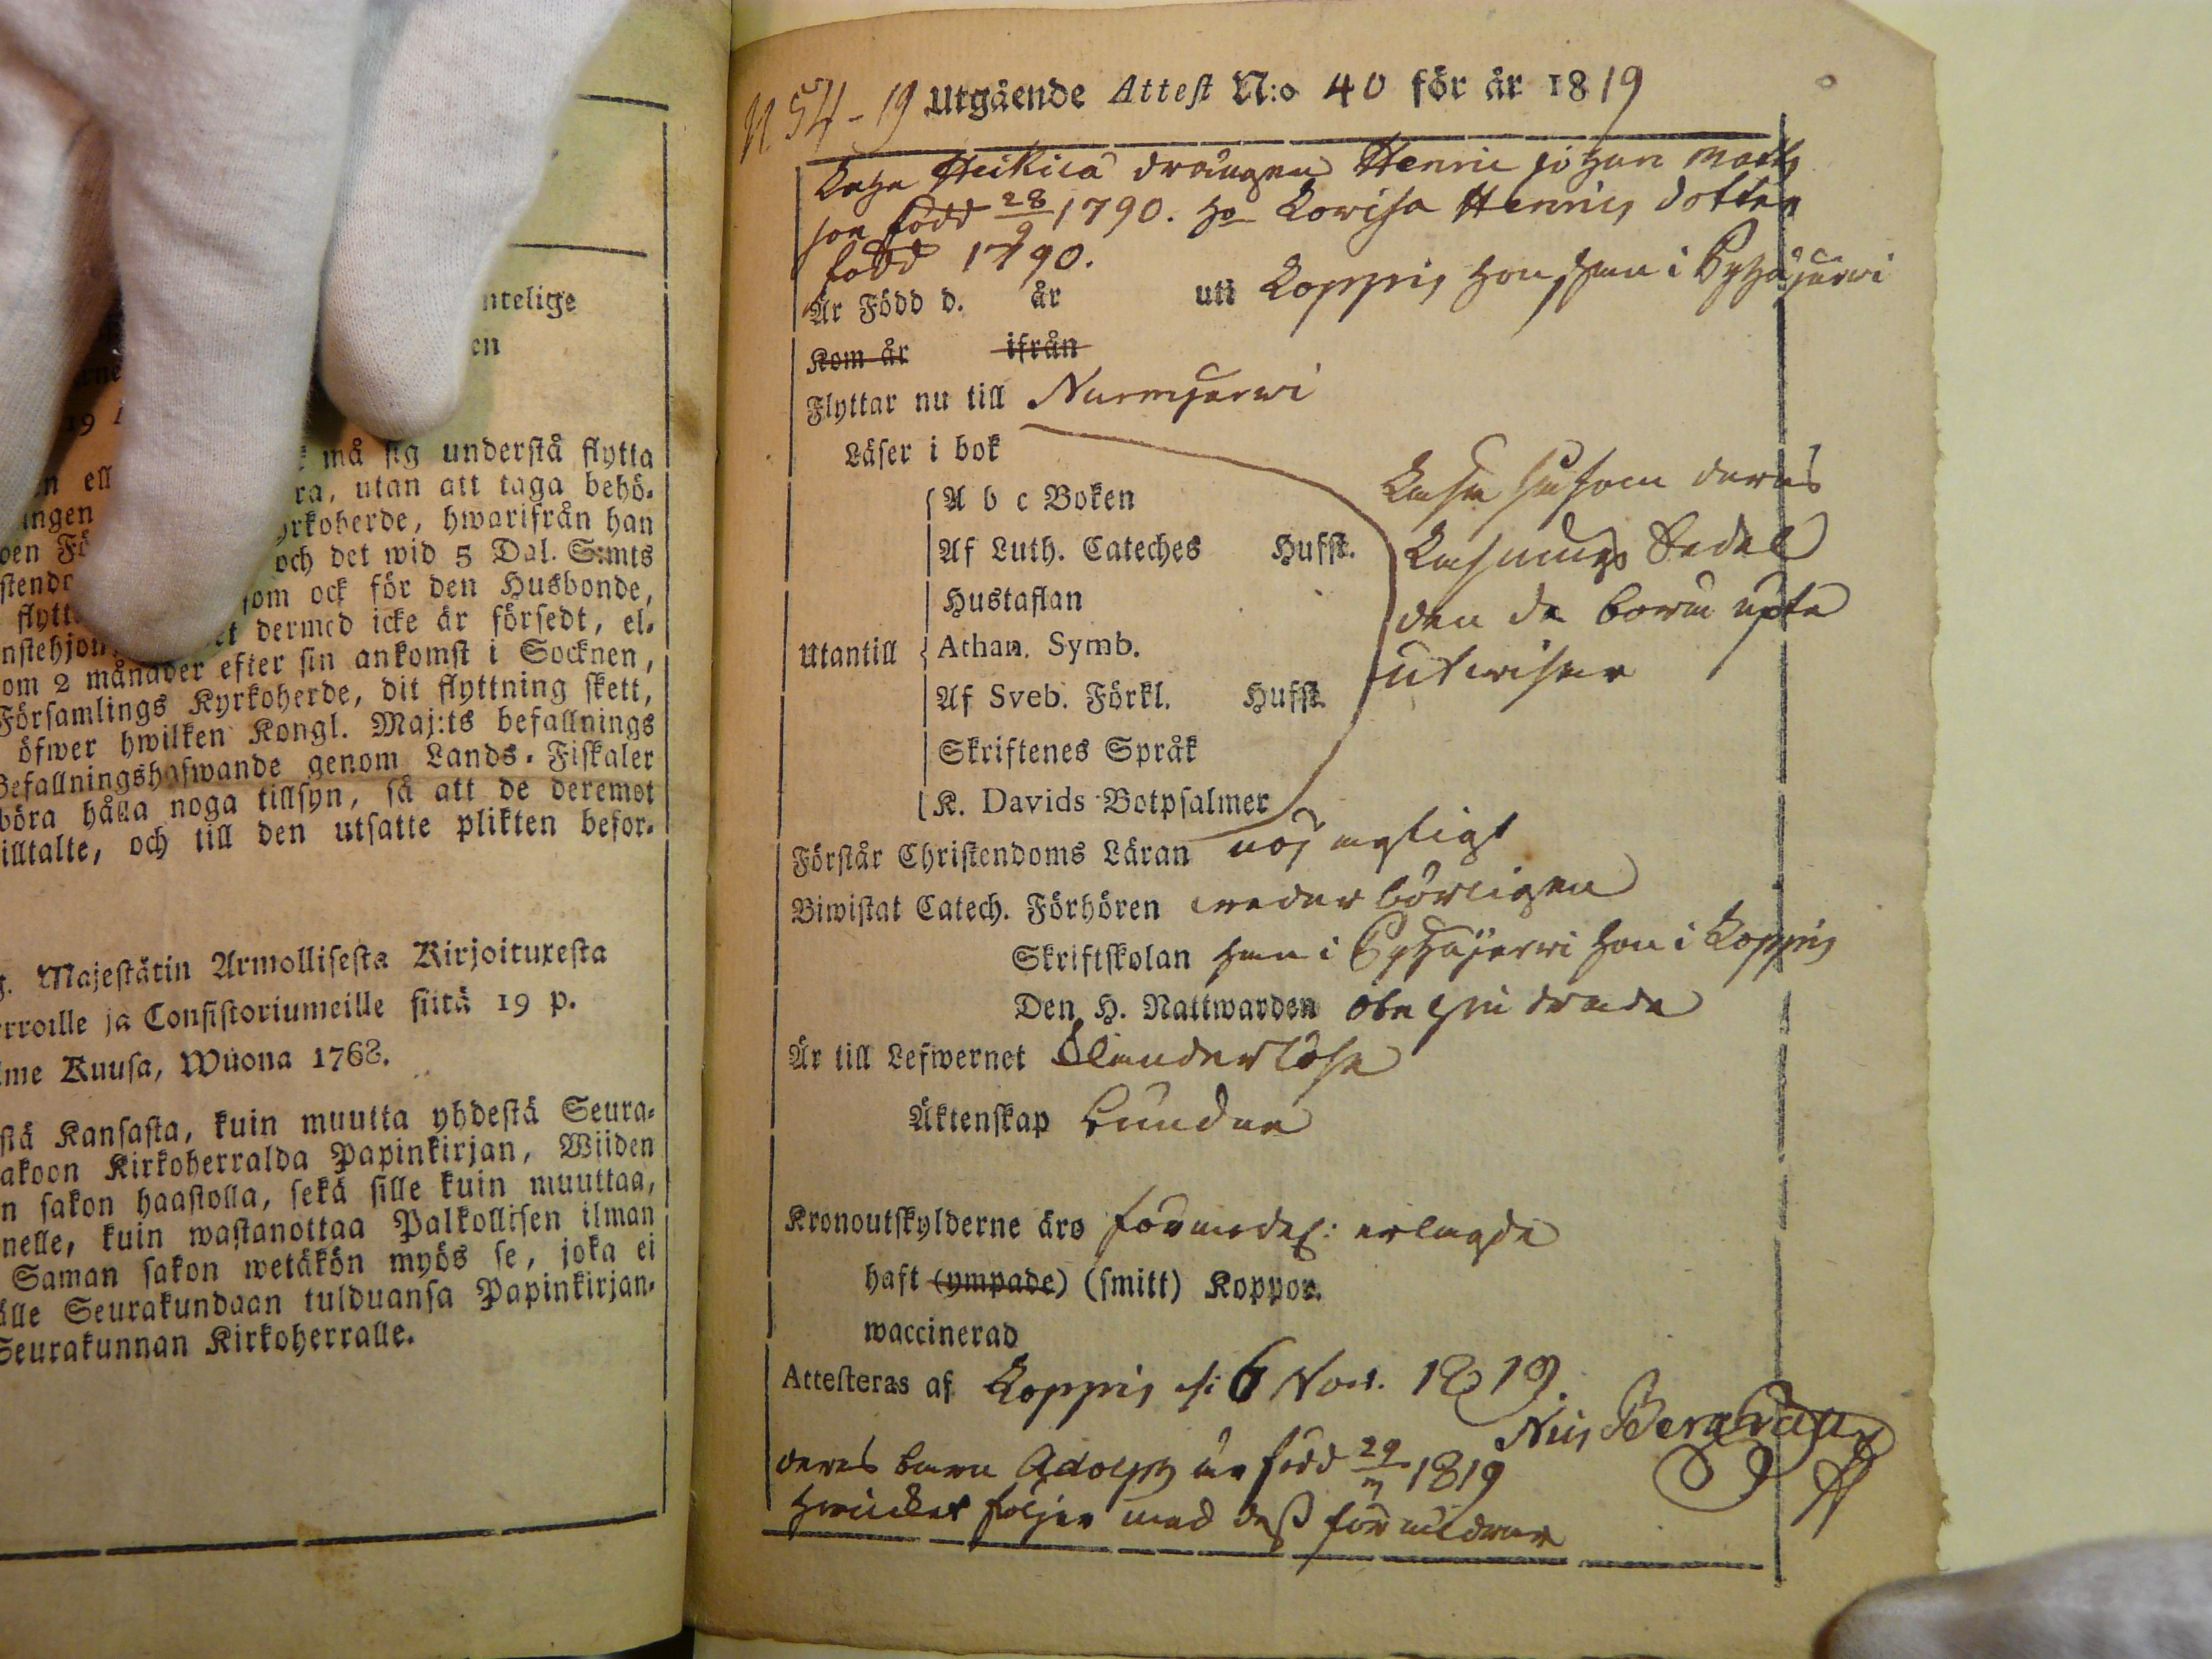 ntelige
en
19
må sig understå flytta
n ell ra, utan att taga behö-
ingen yrkoherde, hwarifrån han
och det wid 5 Dal. S:mts
som ock för den Husbonde,
flytt et dermed icke är försedt, el-
nstehjon
om 2 månader efter sin ankomst i Socknen,
Församlings Kyrkoherde, dit flyttning skett,
öfwer hwilken Kongl. Maj:ts befallnings
Befallningshafwande genom Lands-Fiskaler
böra hålla noga tillsyn, så att de deremot
illtalte, och till den utsatte plikten befor-
Majestätin Armollisesta Kirjoituxesta
rroille ja Consistoriumeille siitä 19 p.
Kuusa, Wuona 1768.
stä Kansasta, kuin muutta yhdestä Seura-
akoon Kirkoherralda Papinkirjan, Wiiden
n sakon haastolla, sekä sille kuin muuttaa,
nelle, kuin wastanottaa Palkollisen ilman
Saman sakon wetäkön myös se, joka ei
älle Seurakundaan tulduansa Papinkirjan-
Seurakunnan Kirkoherralle.
N 54-19 Utgående Attest N:o 40 för år 1819
Heikilä drängen Henric Johan Matts
son född 28/9 1790. Lovisa Henrics dotter
född 1790.
Är Född d. år uti Loppis hon, han i Pyhäjerwi
Kom år ifrån
Flyttar nu till Nurmjerwi
Läser i bok
A b c Boken
Af Luth. Cateches Hufst.
Hustaflan
Utantill Athan. Symb.
Af Sveb. Förkl. Hufst.
Skriftenes Språk
K. Davids Botpsalmer
Läsa såsom deras
Läsnings Sedel
den de böra
utwisar
Förstår Christendoms Läran nöjagtigt
Biwistat Catech. Förhören wederbörligen
Skriftskolan han i Pyhäjerwi hon i Loppis
Den H. Nattwarden obehindrade
Är till Lefwernet Olanderlöse
Äktenskap bundne
Kronoutskylderne äro förmodel: erlagde
haft (ympade) (smitt) Koppor.
waccinerad
Attesteras af Loppis d: 6 Nov. 1819.
Nils Bergman
deras barn Adolph är född 29/7 1819
hwilket följer med dess föräldrar